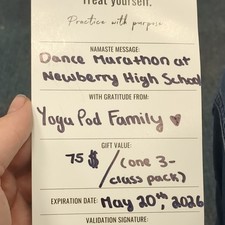 Treat yourself.
Practice with purpose
NAMASTE MESSAGE:
Dance Marathon at
Newberry High School
WITH GRATITUDE FROM:
Yoga Pod Family ♥
GIFT VALUE:
75 $ / (one 3-
class pack)
EXPIRATION DATE: May 20th, 2026
VALIDATION SIGNATURE: